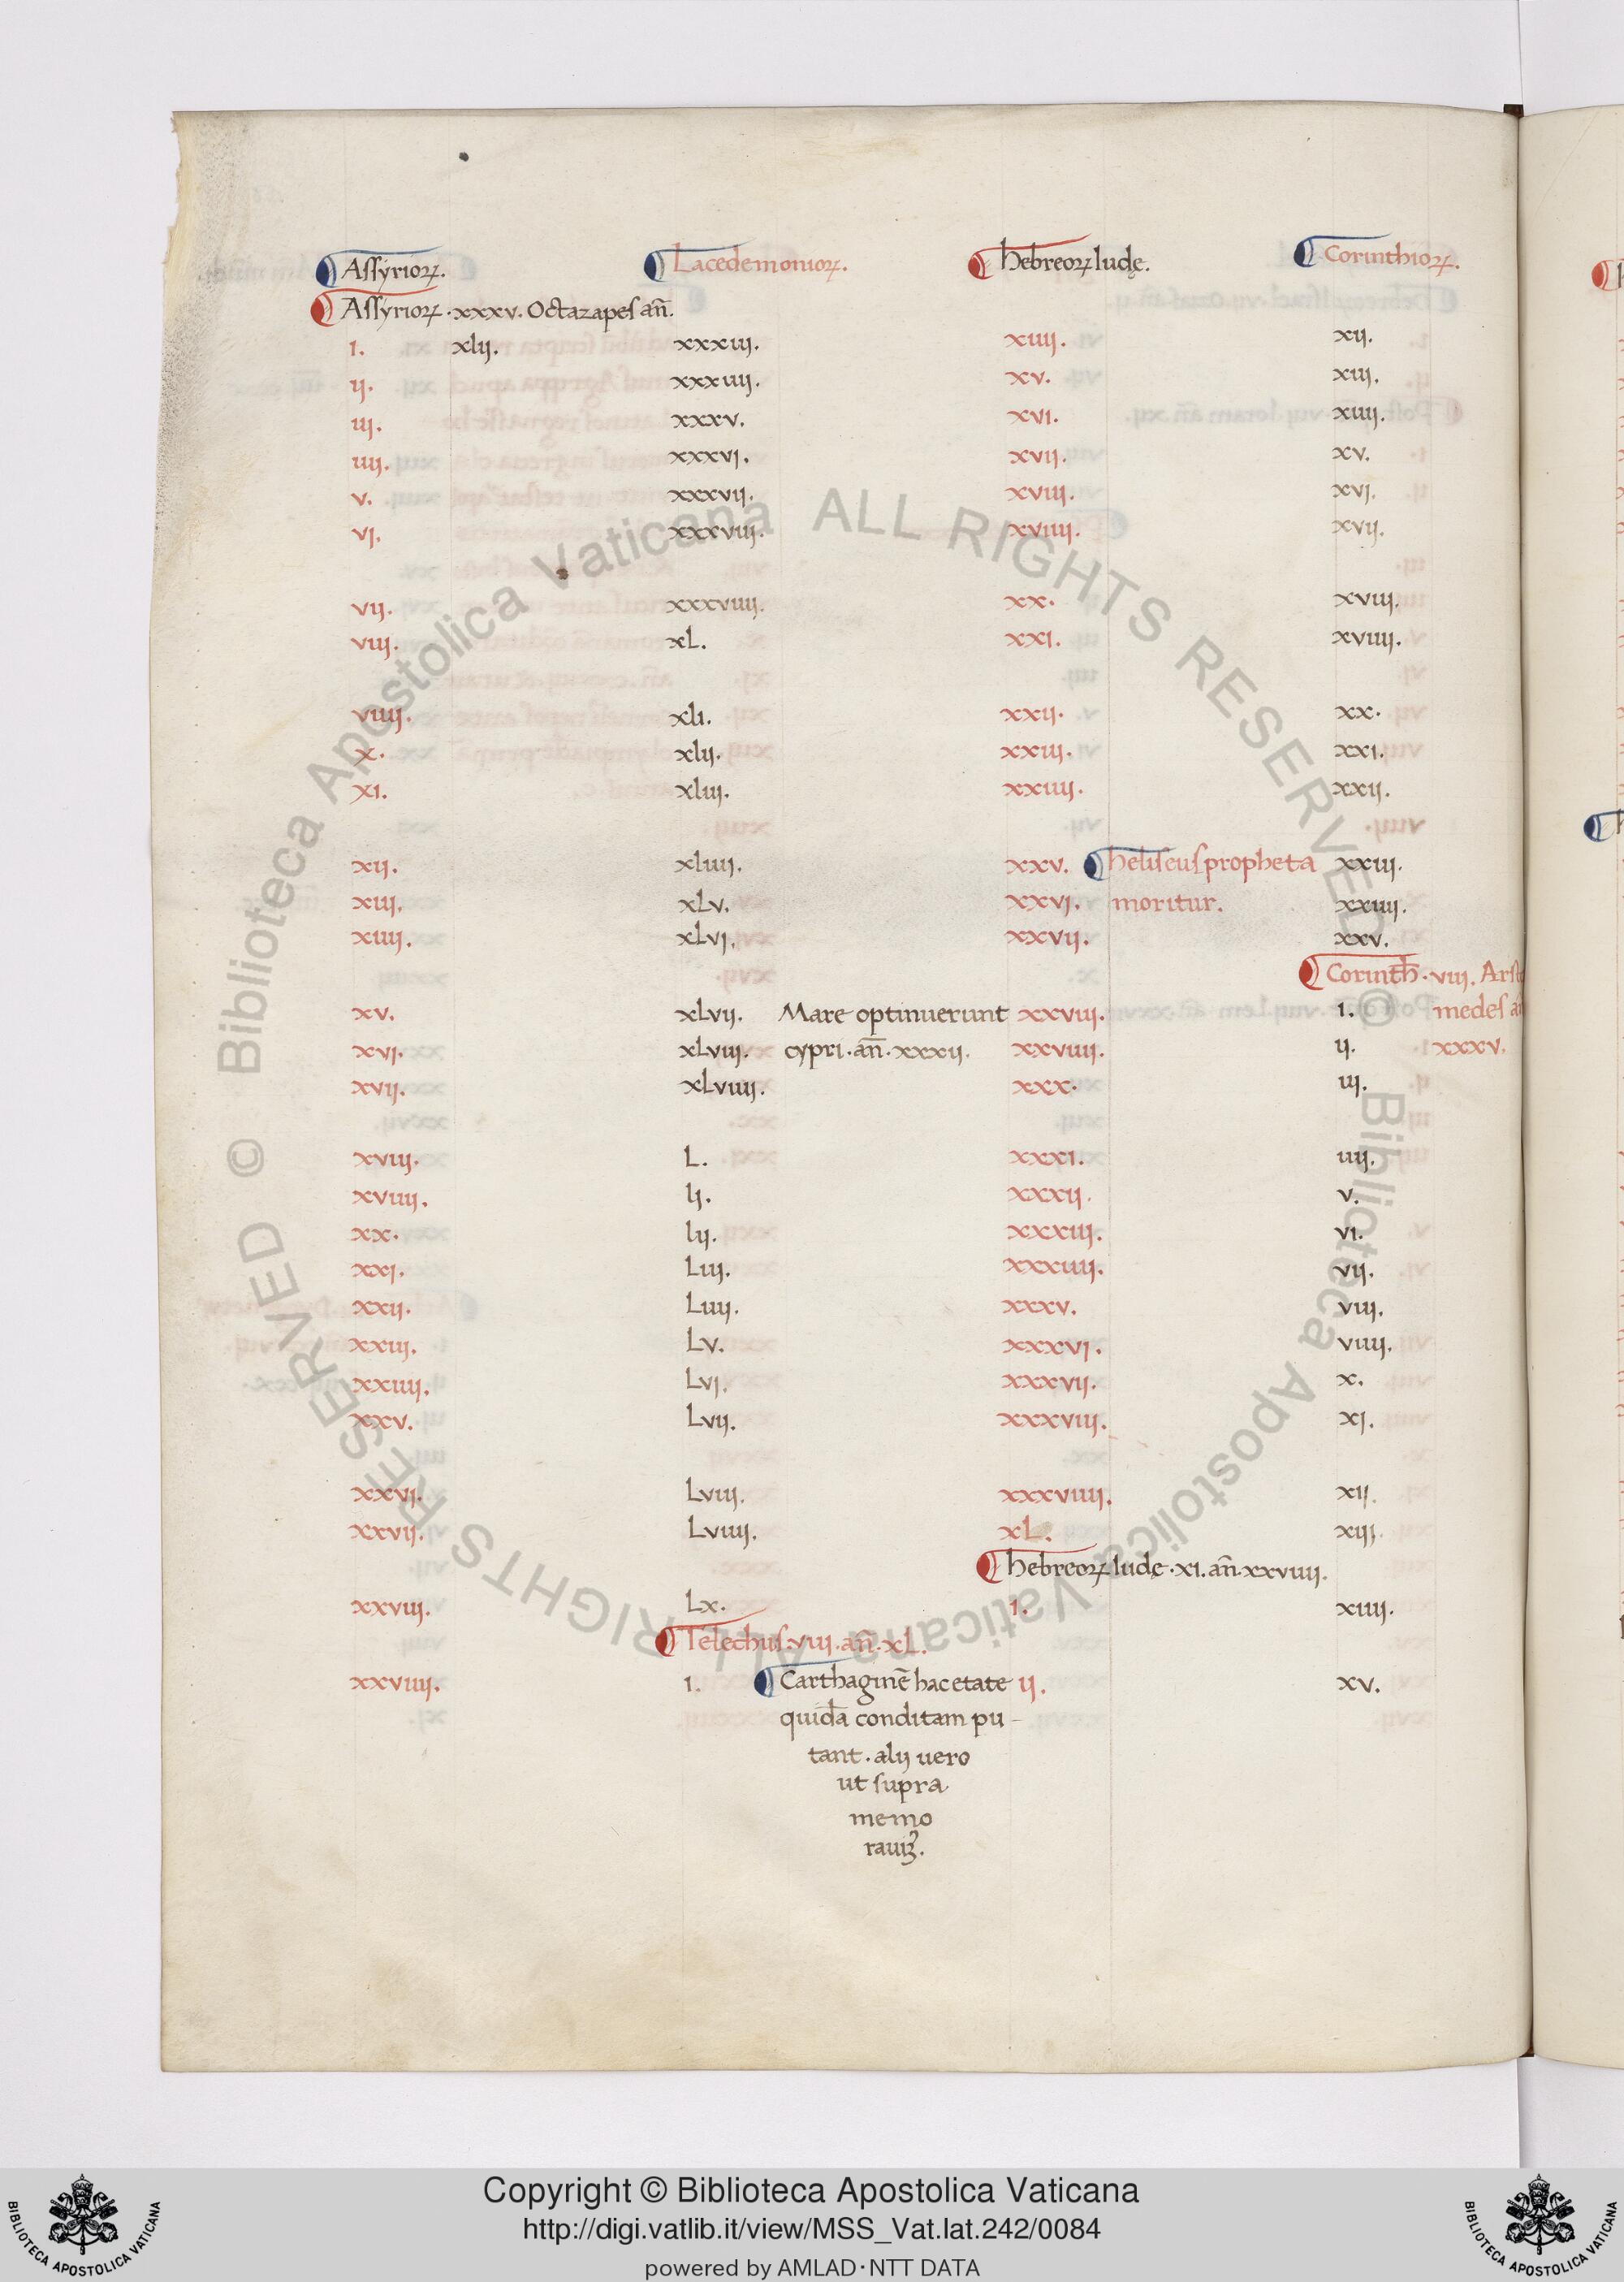 Aſſyrioꝝ. Lacedemonioꝝ. hebreoꝝ Iudę. Corinthioꝝ.
Aſſyrioꝝ · xxxv. Octazapeſ an̄.
i. xlij. xxxiij. xiiij. xij.
ij. xxxiiij. xv. xiij.
iij. xxxv. xvi. xiiij.
iiij. xxxvj. xvij. xv.
v. xxxvij. xviij. xvj.
vj. xxxviij. xviiij. xvij.
vij. xxxviiij. xx. xviij.
viij. xL. xxi. xviiij.
viiij. xli. xxij. xx.
x. xlij. xxiij. xxi.
xi. xliij. xxiiij. xxij.
xij. xliiij. xxv. heliſeuſ propheta xxiij.
xiij. xLv. xxvj. moritur. xxiiij.
xiiij. xLvj. xxvij. xxv.
Corinth̄ · viij.
xv. xLvij. Mare optinuerunt xxviij. i. medeſ
xvj. xLviij. cypri · an̄ · xxxij. xxviiij. ij. xxxv.
xvij. xLviiij. xxx. iij.
xviij. L. xxxi. iiij.
xviiij. lj. xxxij. v.
xx. lij. xxxiij. vi.
xxj. Liij. xxxiiij. vij.
xxij. Liiij. xxxv. viij.
xxiij. Lv. xxxvj. viiij.
xxiiij. Lvj. xxxvij. x.
xxv. Lvij. xxxviij. xj.
xxvj. Lviij. xxxviiij. xij.
xxvij. Lviiij. xL. xiij.
hebreoꝝ Iudę · xi. an̄ · xxviiij.
xxviij. Lx. i. xiiij.
Telechuſ · viij · an̄ · xL.
xxviiij. i. Carthaginē hac etate ij. xv.
quidā conditam pu-
tant · alij uero
ut ſupra
memo
rauiꝫ.
Copyright © Biblioteca Apostolica Vaticana
http://digi.vatlib.it/view/MSS_Vat.lat.242/0084
powered by AMLAD·NTT DATA
BIBLIOTECA APOSTOLICA VATICANA
BIBLIOTECA APOSTOLICA VATICANA
© Biblioteca Apostolica Vaticana ALL RIGHTS RESERVED
© Biblioteca Apostolica Vaticana ALL RIGHTS RESERVED